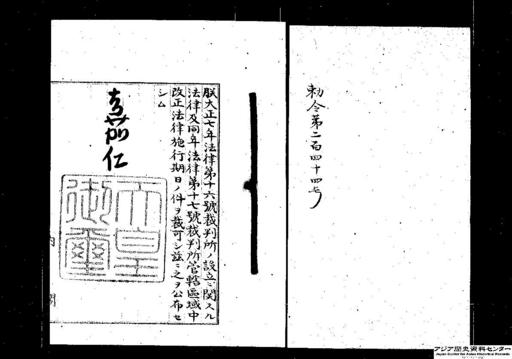 勅令第二百四十四号
朕大正七年法律第十六號裁判所ノ設立ニ関スル
法律及同年法律第十七號裁判所管轄區域中
改正法律施行期日ノ件ヲ裁可シ茲ニ之ヲ公布セ
シム
嘉仁
天皇御璽
内閣
アジア歴史資料センター
Japan Center for Asian Historical Records